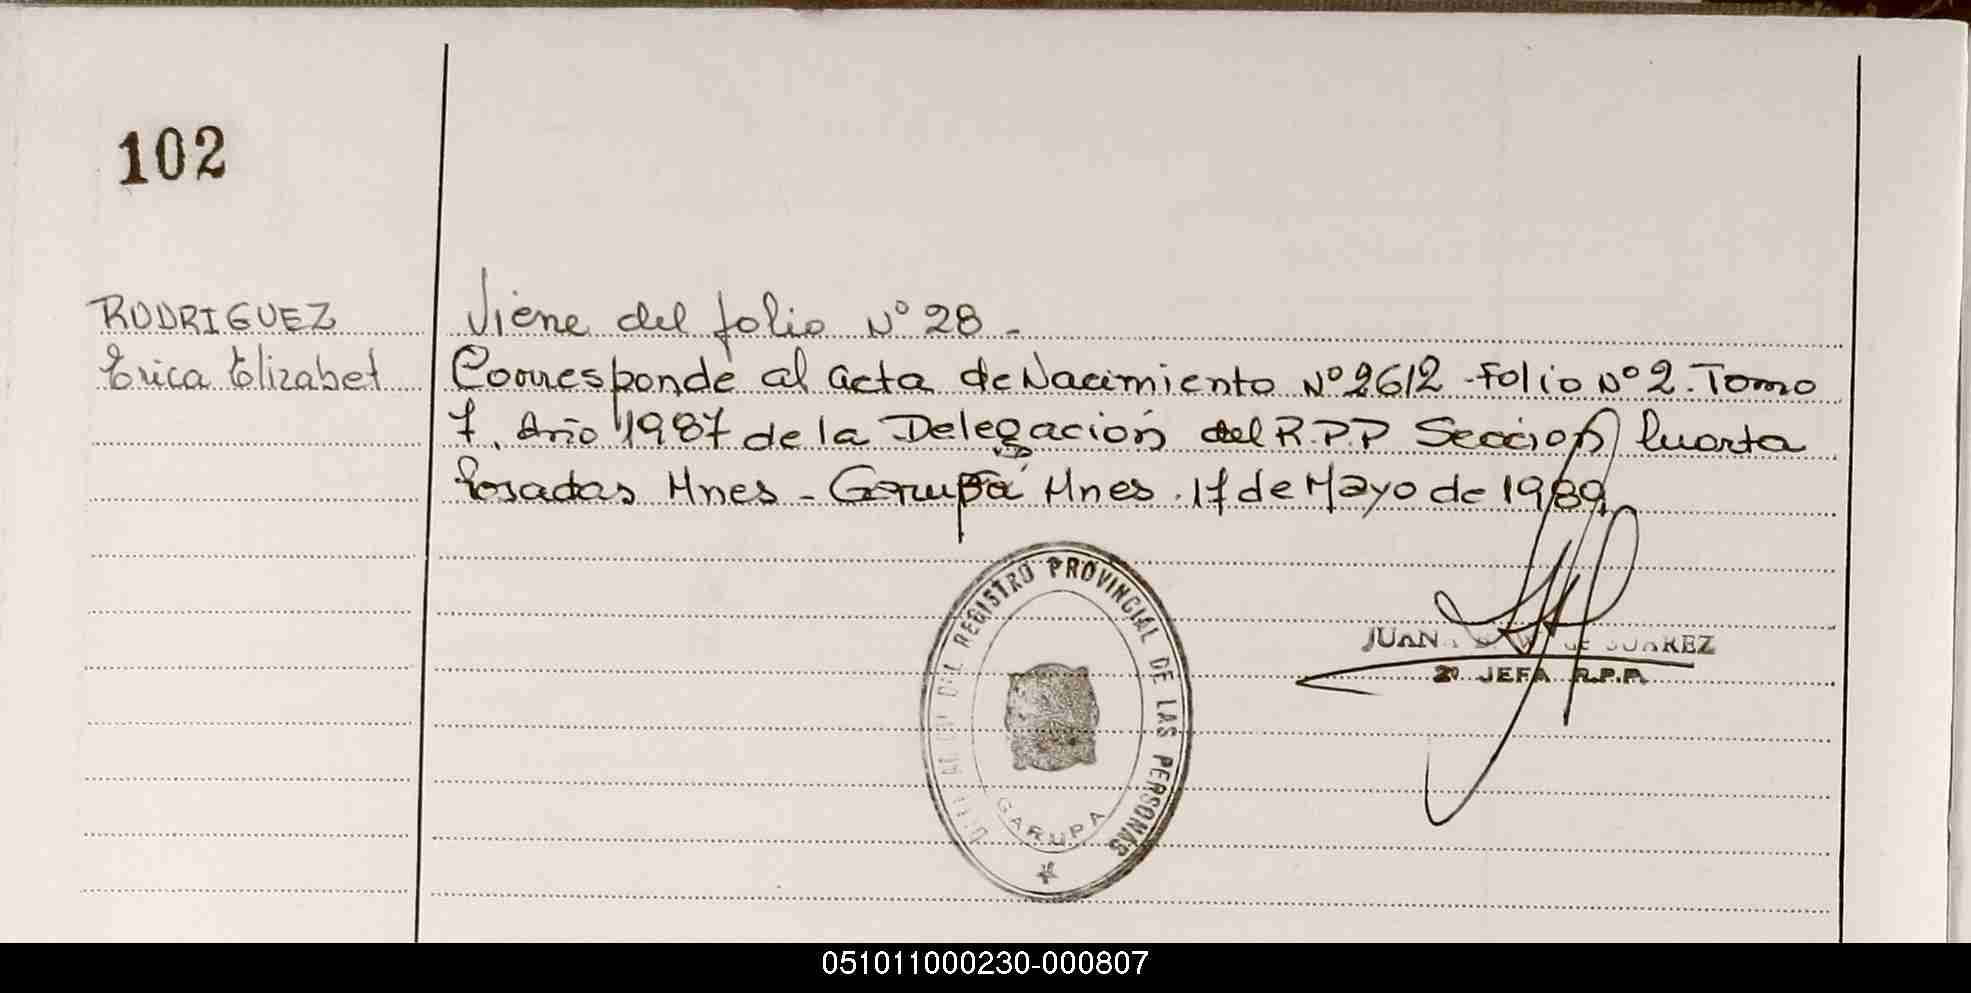 102
RODRIGUEZ
Erica Elizabet
Viene del folio Nº 28 -
Corresponde al acta de Nacimiento Nº 2612 - Folio Nº 2. Tomo
7. Año 1987 de la Delegación del R.P.P Sección Cuarta
Posadas Mnes - Garupá Mnes. 17 de Mayo de 1989
REGISTRO PROVINCIAL DE LAS PERSONAS
GARUPA
JUAN SUAREZ
2º JEFA R.P.P.
051011000230-000807